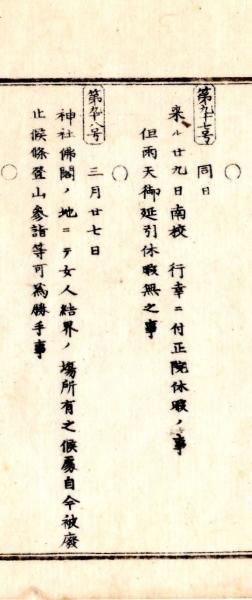 第九十七号
同日
来ル廿九日南校 行幸ニ付正院休暇ノ事
但雨天御延引休暇無之事
○
第九十八号
三月廿七日
神社佛閣ノ地ニテ女人結界ノ場所有之候處自今被廃
止候條登山参詣等可為勝手事
○